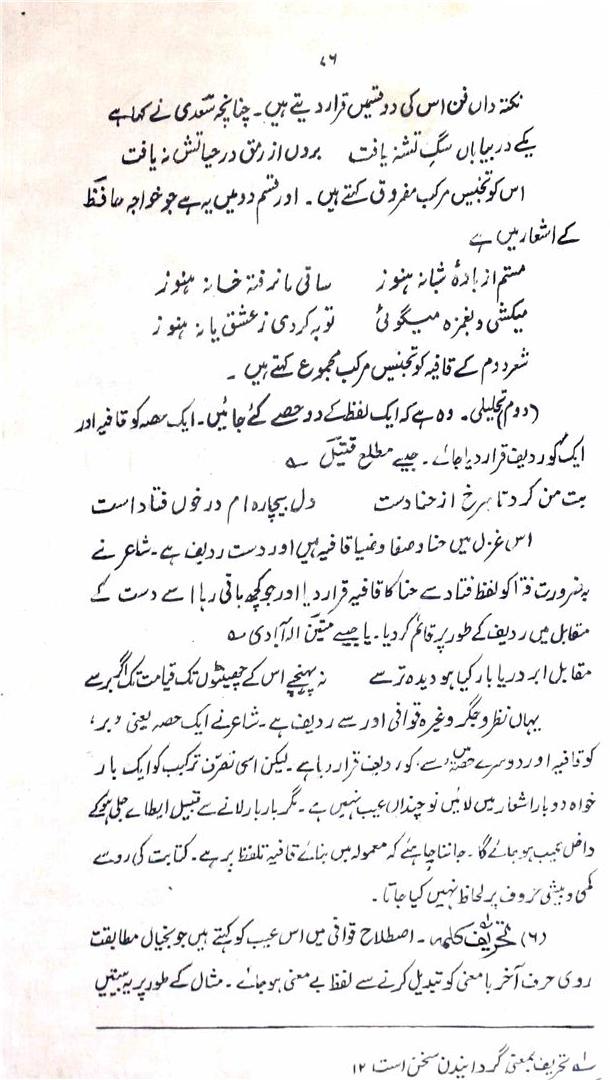 ۷۶
نکتہ داں فن اس کی دو قسمیں قرار دیتے ہیں۔ چنانچہ سعدی نے کہا ہے
یکے در بیاباں سگِ تشنہ یافت بروں از رمق در حیاتش نہ یافت
اس کو تجنیس مرکب مفروق کہتے ہیں۔ اور قسم دو میں یہ ہے جو خواجہ حافظ
کے اشعار میں ہے
مستم از بادۂ شبانہ ہنوز ساقی ما نرفتہ خانہ ہنوز
میکشی و بغمزہ میگوئی توبہ کردی ز عشق یا نہ ہنوز
شعر دوم کے قافیہ کو تجنیس مرکب مجموع کہتے ہیں۔
(دوم) تحلیلی۔ وہ ہے کہ ایک لفظ کے دو حصے کئے جائیں۔ ایک حصہ کو قافیہ اور
ایک کو ردیف قرار دیا جائے۔ جیسے مطلع قتیل ؎
بت من کرد تا سرخ از حنا دست دل بیچارہ ام در خوں فتاد است
اس غزل میں حنا و صفا و ضیا قافیہ ہیں اور دست ردیف ہے۔ شاعر نے
بہ ضرورت فتا کو لفظ فتاد سے حنا کا قافیہ قرار دیا اور جو کچھ باقی رہا اسے دست کے
مقابل میں ردیف کے طور پر قائم کر دیا۔ یا جیسے متین الہ آبادی ؎
مقابل ابر دریا بار کیا ہو دیدہ تر سے نہ پہنچے اس کے چھینٹوں تک قیامت تک اگر برسے
یہاں نظر و جگر وغیرہ قوافی اور سے ردیف ہے۔ شاعر نے ایک حصہ یعنی ’بر‘
کو قافیہ اور دوسرے حصہ میں ’سے‘ کو ردیف قرار دیا ہے۔ لیکن اسی تصرف ترکیب کو ایک بار
خواہ دو بار اشعار میں لائیں تو چنداں عیب نہیں ہے۔ مگر بار بار لانے سے قبیل ایطاے جلی ہو کے
داخل عیب ہو جائے گا۔ جاننا چاہئے کہ معمولہ میں بنائے قافیہ تلفظ پر ہے۔ کتابت کی رو سے
کمی و بیشی حروف پر لحاظ نہیں کیا جاتا۔
(۶) تحریف کلمہ۔ اصطلاح قوافی میں اس عیب کو کہتے ہیں جو بخیال مطابقت
روی حرف آخر با معنی کو تبدیل کرنے سے لفظ بے معنی ہو جائے۔ مثال کے طور پر یہ بیتیں
۱؎ تحریف بمعنی گردانیدن سخن است ۱۲